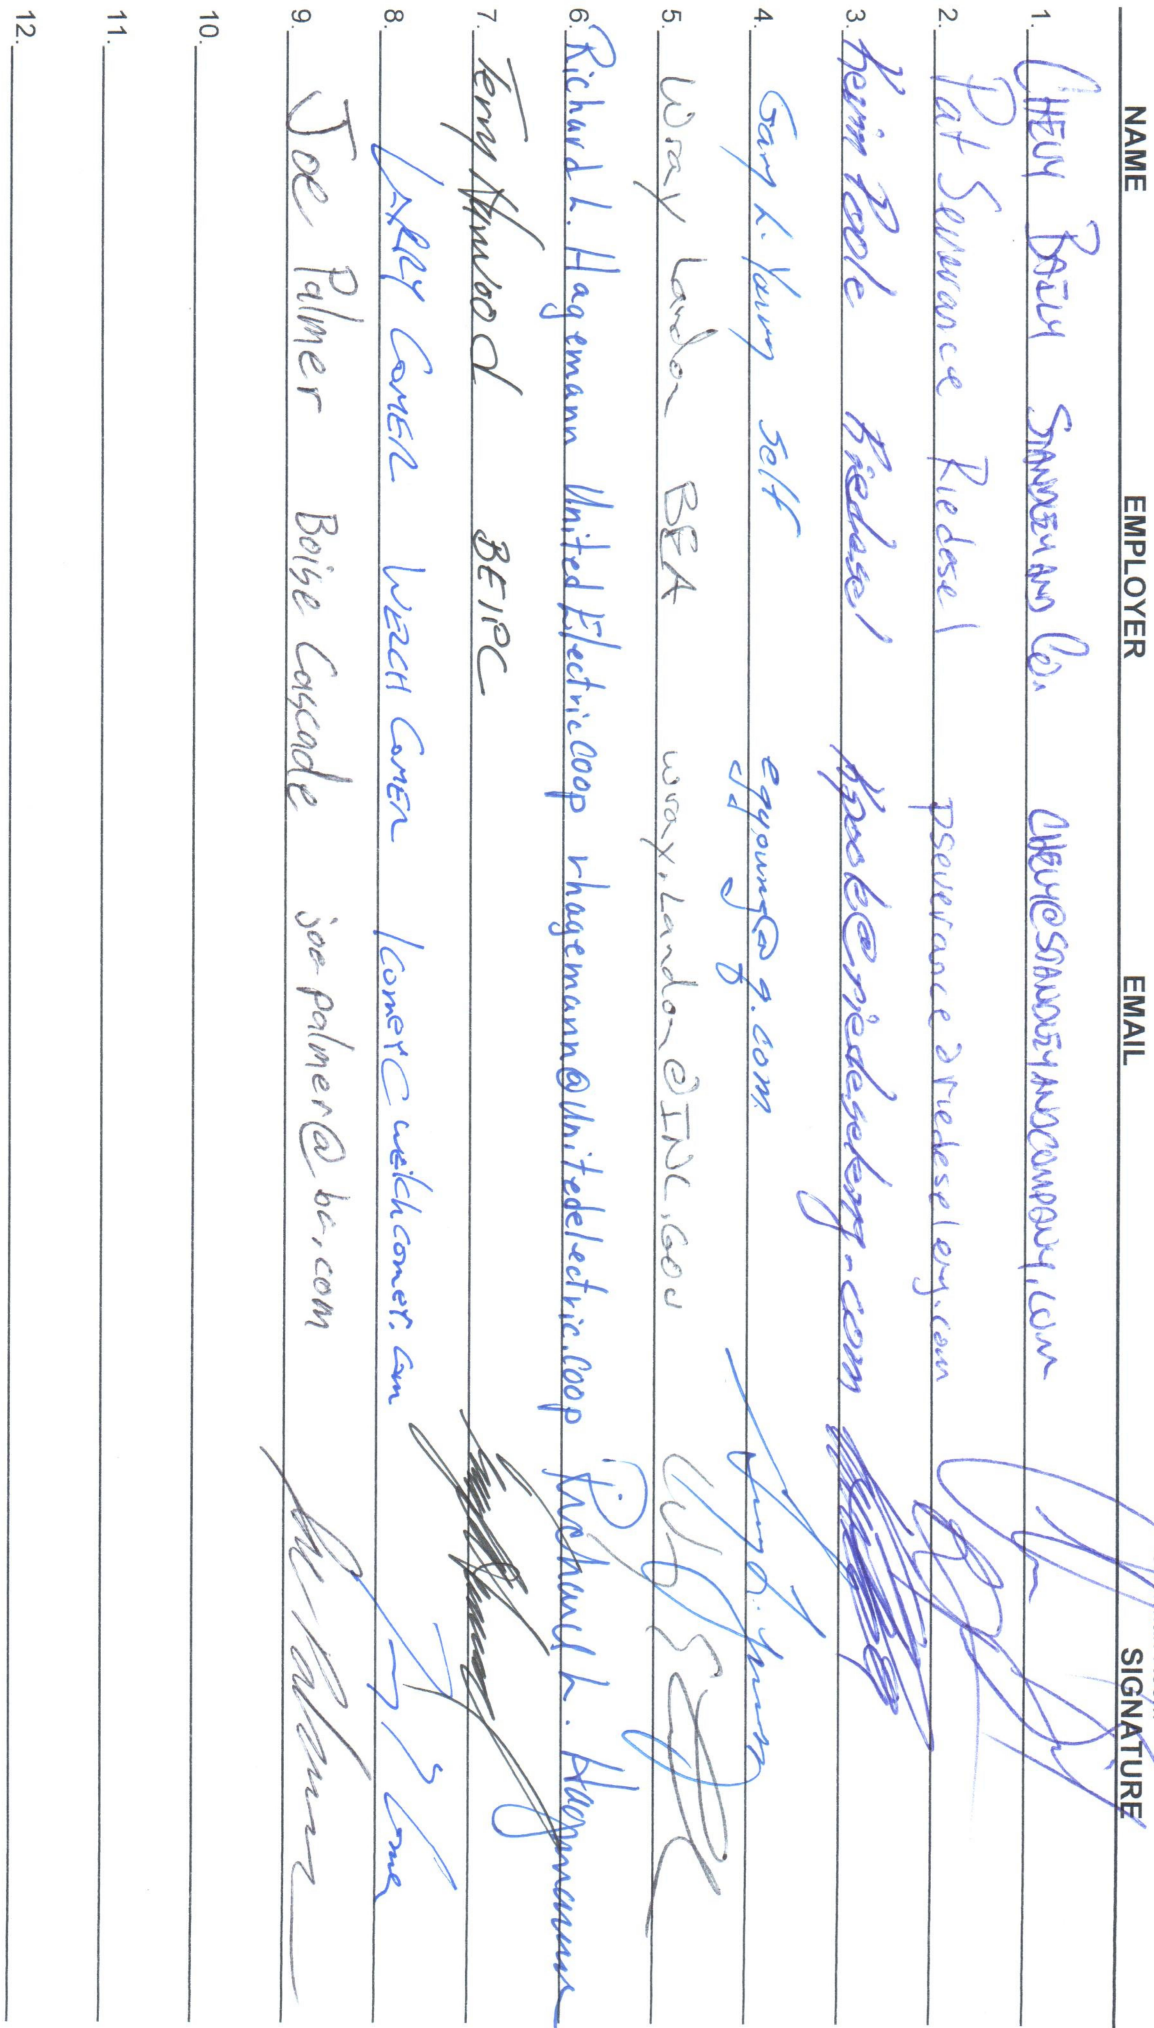 NAME EMPLOYER EMAIL SIGNATURE
1. CHEUY BAILY STANDLEY AND CO. CHEUY@STANDLEYANDCOMPANY.COM
2. Pat Severance Riedesel pseverance@riedeseleng.com
3. Kevin Poole Riedesel kpoole@riedeseleng.com
4. Gary L. Young Self eggyoung@q.com Gary L. Young
5. Wray Landon BEA wray.Landon@INL.GOV
6. Richard L. Hagemann United Electric Coop rhagemann@unitedelectric.coop Richard L. Hagemann
7. BEIPC
8. LARRY COMER WELCH COMER lcomer@welchcomer.com
9. Joe Palmer Boise Cascade joepalmer@bc.com Joe Palmer
10.
11.
12.